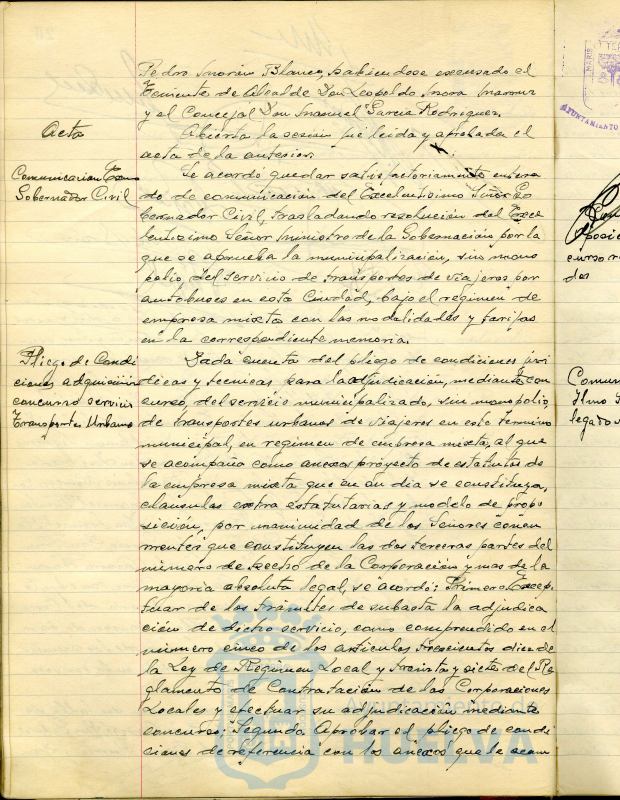 Pedro Morón Blanco, habiendose excusado el
Teniente de Alcalde Don Leopoldo Mora
y el Concejal Don Manuel Garcia Rodriguez.
Acta
Abierta la sesion fué leida y aprobada el
acta de la anterior.
Comunicacion Excmo
Gobernador Civil
Se acordó quedar satisfactoriamente entera
do de comunicación del Excelentisimo Señor Go
bernador Civil, trasladando resolución del Exce
lentisimo Señor Ministro de la Gobernación por la
que se aprueba la municipalización, sin mono
polio, del servicio de transportes de viajeros por
autobuses en esta Ciudad, bajo el regimen de
empresa mixta con las modalidades y tarifas
en la correspondiente memoria.
Pliego de Condi
ciones adquisicion
concurso servicio
Transportes Urbanos
Dada cuenta del pliego de condiciones juri
dicas y tecnicas para la adjudicación, mediante con
curso, del servicio municipalizado, sin monopolio
de transportes urbanos de viajeros en este termino
municipal, en regimen de empresa mixta, al que
se acompaña como anexos proyecto de estatutos de
la empresa mixta que en su dia se constituya,
clausulas extra estatutarias y modelo de propo
sición, por unanimidad de los Señores concu
rrentes que constituyen las dos terceras partes del
número de hecho de la Corporación y mas de la
mayoria absoluta legal, se acordó: Primero Excep
tuar de los trámites de subasta la adjudica
ción de dicho servicio, como comprendido en el
número cinco de los articulos trescientos diez de
la Ley de Regimen Local y treinta y siete del Re
glamento de Contratación de las Corporaciones
Locales y efectuar su adjudicación mediante
concurso; Segundo Aprobar el pliego de condi
ciones de referencia con los anexos que le acom
AYUNTAMIENTO
posic
curso
dos
Comun
Ilmo
legado
Ayuntamiento de
HUELVA